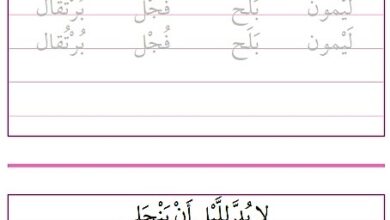 لَيْمون بَلَح فُجْل بُرْتُقال
لَيْمون بَلَح فُجْل بُرْتُقال
لا بُدَّ لِلَّيْلِ أَنْ يَنْجَلي